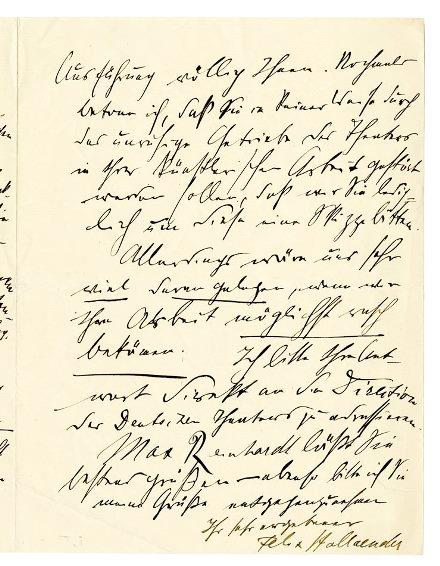 Ausführung völlig Ihnen. Nochmals
betone ich, daß Sie in keiner Weise durch
das unruhige Getriebe des Theaters
in Ihrer künstlerischen Arbeit gestört
werden sollen, daß wir Sie ledig-
lich um diese eine Skizze bitten.
Allerdings wäre uns sehr
viel daran gelegen, wenn wir
Ihre Arbeit möglichst rasch
bekämen. Ich bitte Ihre Ant-
wort direkt an die Direktion
des Deutschen Theaters zu adressieren.
Max Reinhardt läßt Sie
bestens grüßen – ebenso bitte ich Sie
meine Grüße entgegenzunehmen
Ihr sehr ergebener
Felix Hollaender